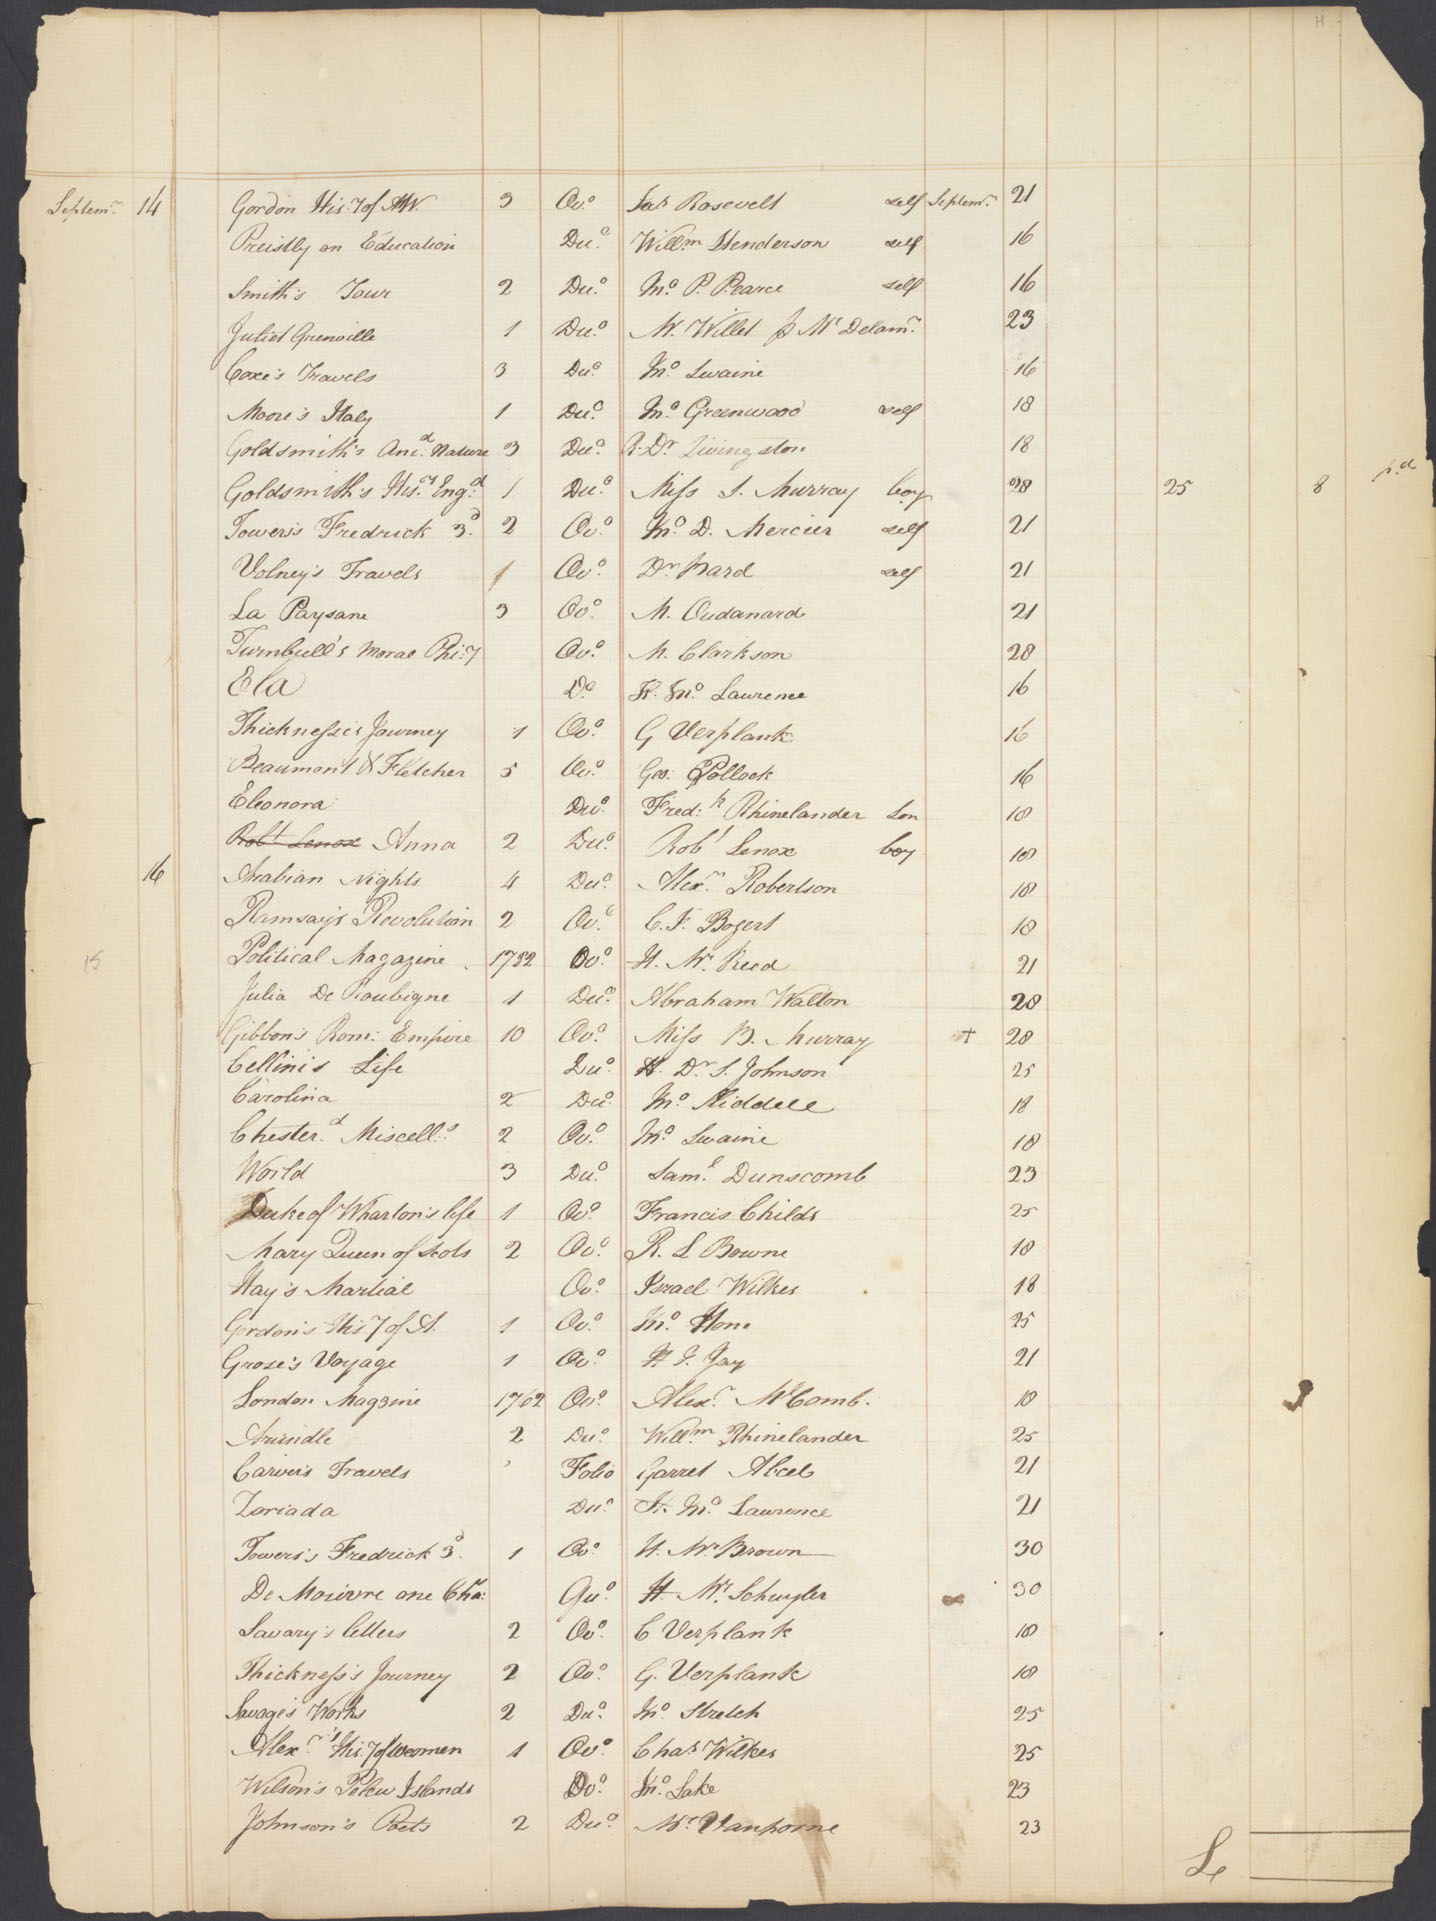 H
Septemr. 14 Gordon His.y of AW. 3 Ovo. Jas Rosevelt self Septemr. 21
Preistly on Education Duo. Willm Henderson self 16
Smith's Tour 2 Duo. Jno. P. Pearce self 16
Juliet Grenville 1 Duo. M. Willet p Mr Delamr. 23
Coxe's Travels 3 Duo. Jno. Swaine 16
Moore's Italy 1 Duo. Jno. Greenwood self 18
Goldsmith's And. Nature 3 Duo. R. Dr Livingston 18
Goldsmith's His.y Engd. 1 Duo. Miss S. Murray boy 28 25 8 pd
Towers's Fredrick 3d. 2 Ovo. Jno. D. Mercier self 21
Volney's Travels 1 Ovo. Dr Bard self 21
La Paysane 3 Ovo. M. Oudanard 21
Turnbull's Moral Phi:y Ovo. M. Clarkson 28
Ela Do. H. Jno. Lawrence 16
Thicknesse's Journey 1 Ovo. G Verplank 16
Beaumont & Fletcher 5 Ovo. Geo: Pollock 16
Eleonora Duo. Fred:k Rhinelander Son 18
Robt Lenox Anna 2 Duo. Robt Lenox boy 18
16 Arabian Nights 4 Duo. Alexr. Robertson 18
Ramsay's Revolution 2 Ovo. C. F. Bogert 18
15 Political Magazine 1782 Ovo. H. Mr. Reed 21
Julia De Roubigne 1 Duo. Abraham Walton 28
Gibbon's Rom: Empire 10 Ovo. Miss B. Murray + 28
Cellini's Life Duo. H. Dr. S. Johnson 25
Carolina 2 Duo. Jno. Riddell 18
Chester.d Miscell.s 2 Ovo. Jno. Swaine 18
World 3 Duo. Saml. Dunscomb 23
Duke of Wharton's life 1 Ovo. Francis Childs 25
Mary Queen of Scots 2 Ovo. R. L Bowne 18
Hay's Martial Ovo. Israel Wilkes 18
Gordon's His.y of A. 1 Ovo. Jno. Hone 25
Grose's Voyage 1 Ovo. H J. Jay 21
London Magzine 1762 Ovo. Alexr. McComb. 18
Arundle 2 Duo. Willm. Rhinelander 25
Carver's Travels Folio Garret Abeel 21
Zoriada Duo. H. Jno. Lawrence 21
Towers's Fredrick 3d. 1 Ovo. H. Mr. Brown 30
De Moivre one Cha: Quo. H. Mr. Schuyler 30
Savary's letters 2 Ovo. C Verplank 18
Thickness's Journey 2 Ovo. G. Verplank 18
Savage's Works 2 Duo. Jno. Stretch 25
Alexr.'s His.y of Weomen 1 Ovo. Chas Wilkes 25
Wilson's Pelew Islands Do. Jno. Lake 23
Johnson's Poets 2 Duo. Mr. Vanhorne 23